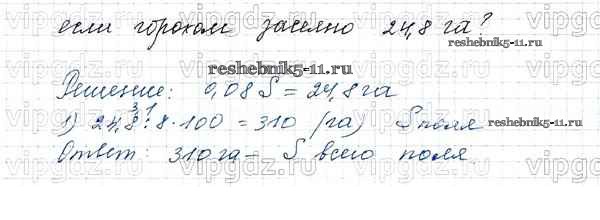 если горохом засеяно 24,8 га?
reshebnik5-11.ru
reshebnik5-11.ru
Решение: 0,08 S = 24,8 га
1) 24,8 : 8 · 100 = 310 (га) S поля
reshebnik5-11.ru
Ответ: 310 га – S всего поля